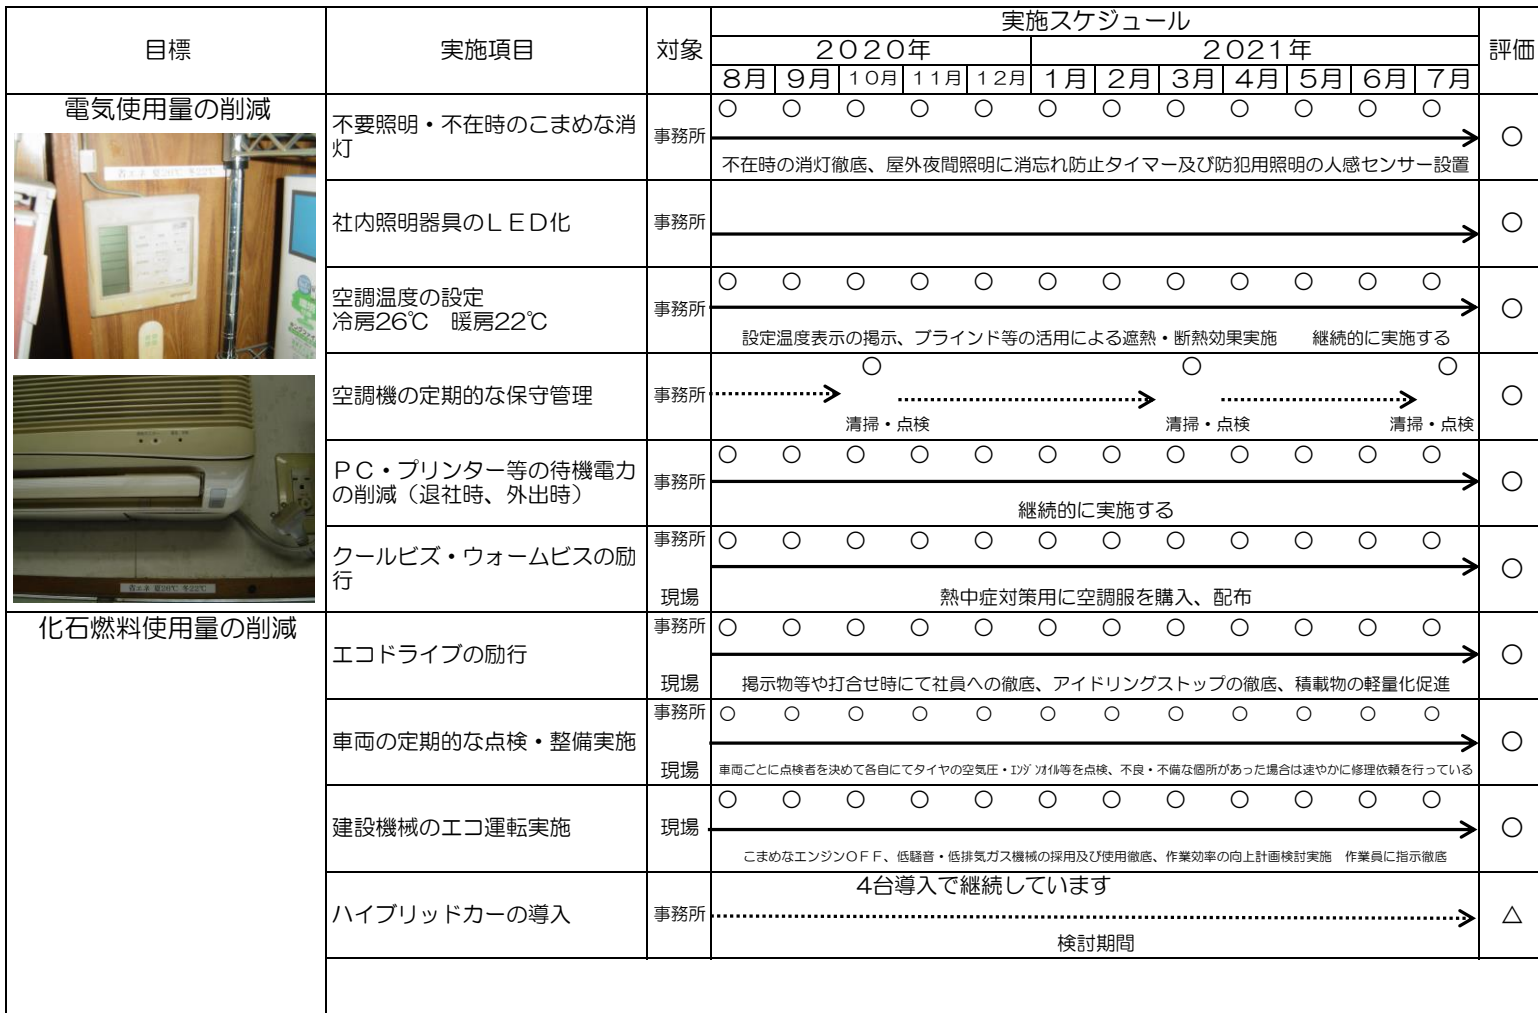 目標
実施項目
対象
実施スケジュール
評価
2020年
2021年
8月 9月 10月 11月 12月 1月 2月 3月 4月 5月 6月 7月
電気使用量の削減
省エネ 夏26℃ 冬22℃
省エネ 夏26℃ 冬22℃
不要照明・不在時のこまめな消
灯
事務所
○ ○ ○ ○ ○ ○ ○ ○ ○ ○ ○ ○
不在時の消灯徹底、屋外夜間照明に消忘れ防止タイマー及び防犯用照明の人感センサー設置
○
社内照明器具のLED化
事務所
○
空調温度の設定
冷房26℃ 暖房22℃
事務所
○ ○ ○ ○ ○ ○ ○ ○ ○ ○ ○ ○
設定温度表示の掲示、ブラインド等の活用による遮熱・断熱効果実施 継続的に実施する
○
空調機の定期的な保守管理
事務所
○ ○ ○
清掃・点検 清掃・点検 清掃・点検
○
PC・プリンター等の待機電力
の削減(退社時、外出時)
事務所
○ ○ ○ ○ ○ ○ ○ ○ ○ ○ ○ ○
継続的に実施する
○
クールビズ・ウォームビスの励
行
事務所
現場
○ ○ ○ ○ ○ ○ ○ ○ ○ ○ ○ ○
熱中症対策用に空調服を購入、配布
○
化石燃料使用量の削減
エコドライブの励行
事務所
現場
○ ○ ○ ○ ○ ○ ○ ○ ○ ○ ○ ○
掲示物等や打合せ時にて社員への徹底、アイドリングストップの徹底、積載物の軽量化促進
○
車両の定期的な点検・整備実施
事務所
現場
○ ○ ○ ○ ○ ○ ○ ○ ○ ○ ○ ○
車両ごとに点検者を決めて各自にてタイヤの空気圧・ｴﾝｼﾞﾝｵｲﾙ等を点検、不良・不備な個所があった場合は速やかに修理依頼を行っている
○
建設機械のエコ運転実施
現場
○ ○ ○ ○ ○ ○ ○ ○ ○ ○ ○ ○
こまめなエンジンOFF、低騒音・低排気ガス機械の採用及び使用徹底、作業効率の向上計画検討実施 作業員に指示徹底
○
ハイブリッドカーの導入
事務所
4台導入で継続しています
検討期間
△